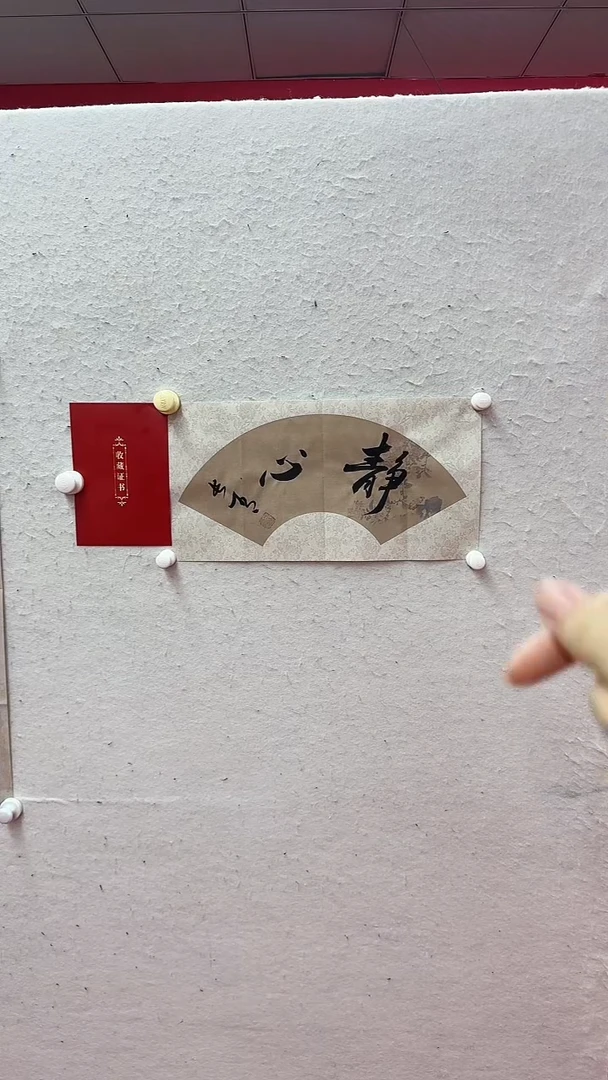 收藏证书
静心